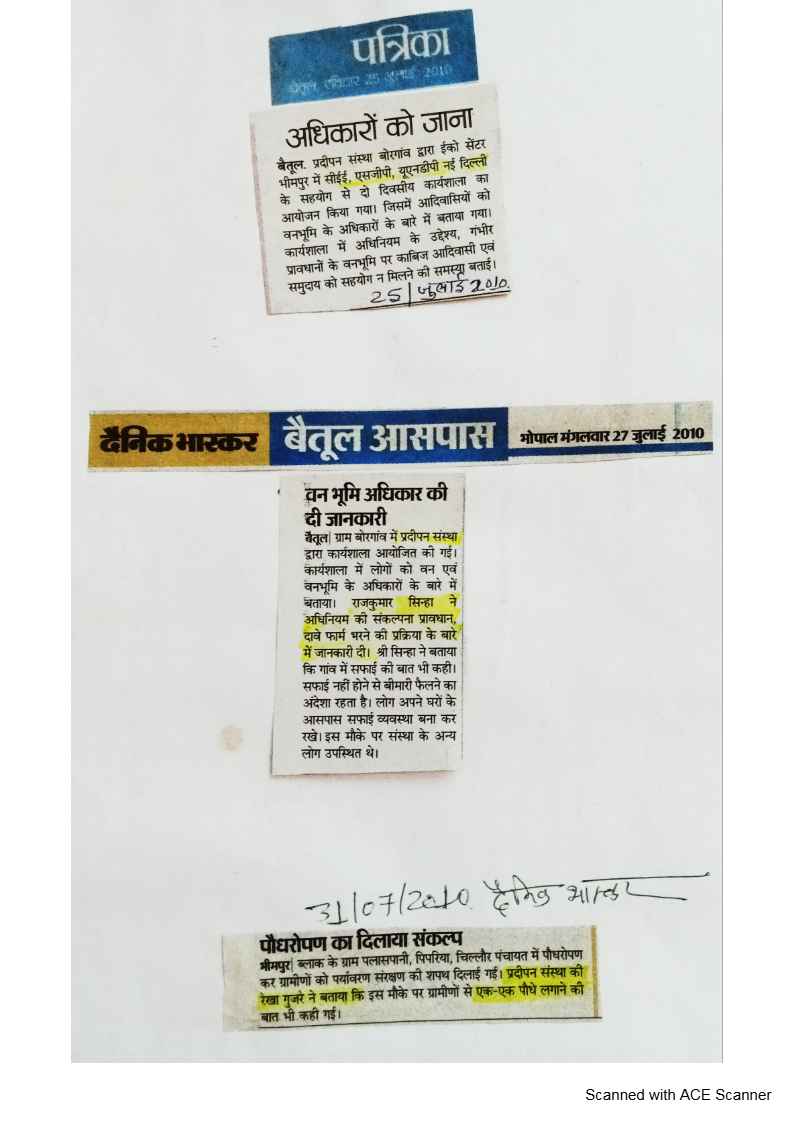 पत्रिका
बैतूल, रविवार 25 जुलाई 2010
अधिकारों को जाना
बैतूल. प्रदीपन संस्था बोरगांव द्वारा ईको सेंटर
भीमपुर में सीईई, एसजीपी, यूएनडीपी नई दिल्ली
के सहयोग से दो दिवसीय कार्यशाला का
आयोजन किया गया। जिसमें आदिवासियों को
वनभूमि के अधिकारों के बारे में बताया गया।
कार्यशाला में अधिनियम के उद्देश्य, गंभीर
प्रावधानों के वनभूमि पर काबिज आदिवासी एवं
समुदाय को सहयोग न मिलने की समस्या बताई।
25/जुलाई 2010.
दैनिक भास्कर बैतूल आसपास भोपाल मंगलवार 27 जुलाई 2010
वन भूमि अधिकार की
दी जानकारी
बैतूल| ग्राम बोरगांव में प्रदीपन संस्था
द्वारा कार्यशाला आयोजित की गई।
कार्यशाला में लोगों को वन एवं
वनभूमि के अधिकारों के बारे में
बताया। राजकुमार सिन्हा ने
अधिनियम की संकल्पना प्रावधान,
दावे फार्म भरने की प्रक्रिया के बारे
में जानकारी दी। श्री सिन्हा ने बताया
कि गांव में सफाई की बात भी कही।
सफाई नहीं होने से बीमारी फैलने का
अंदेशा रहता है। लोग अपने घरों के
आसपास सफाई व्यवस्था बना कर
रखे। इस मौके पर संस्था के अन्य
लोग उपस्थित थे।
31/07/2010 दैनिक भास्कर
पौधरोपण का दिलाया संकल्प
भीमपुर| ब्लाक के ग्राम पलासपानी, पिपरिया, चिल्लौर पंचायत में पौधरोपण
कर ग्रामीणों को पर्यावरण संरक्षण की शपथ दिलाई गई। प्रदीपन संस्था की
रेखा गुजरे ने बताया कि इस मौके पर ग्रामीणों से एक-एक पौधे लगाने की
बात भी कही गई।
Scanned with ACE Scanner